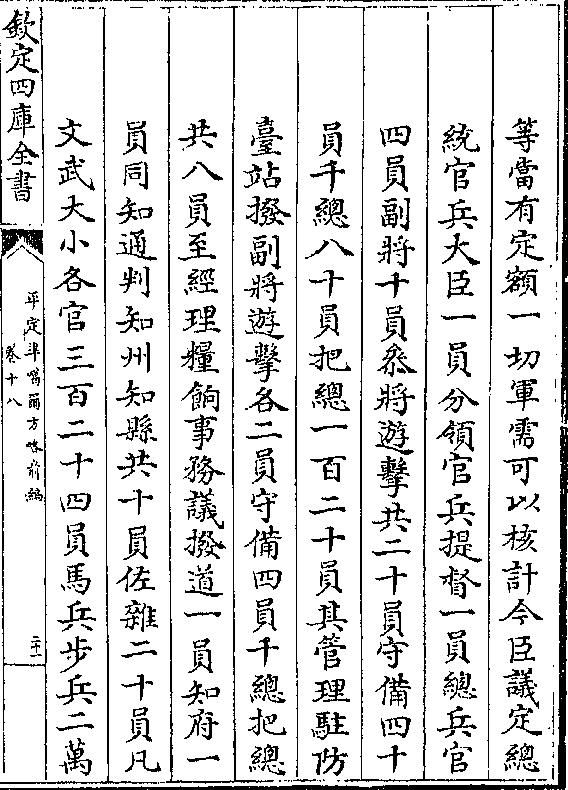 等當有定額一切軍需可以核計今臣議定總
統官兵大臣一員分領官兵提督一員總兵官
四員副將十員叅將遊擊共二十員守備四十
員千總八十員把總一百二十員其管理駐防
臺站撥副將遊擊各二員守備四員千總把總
共八員至經理糧餉事務議撥道一員知府一
員同知通判知州知縣共十員佐雜二十員凡
文武大小各官三百二十四員馬兵步兵二萬
欽定四庫全書
平定準噶爾方略前編
卷十八
二十一